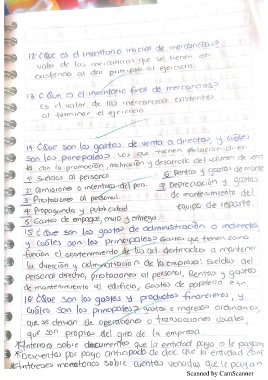 12 ¿Que es el inventario inicial de mercancias?
valor de las mercancias que se tienen en
existencia al dar principio al ejercicio.
13 ¿Que es el inventario final de mercancias?
Es el valor de las mercancias existentes
al terminar el ejercicio.
14 ¿Que son los gastos de venta o directos, y cuáles
son los principales? Los que tienen relación direc
ta con la promoción, realización y desarrollo del volumen de vent
1 Sueldos al personal
6 Rentas y gastos de mante
2 Comisiones o incentivos del per.
7 Depreciación y gastos
3 Prestaciones al personal.
de mantenimiento del
4 Propaganda y publicidad
equipo de reparto.
5 Gastos de empaque, envio y entrega
15 ¿Que son los gastos de administración o indirectos
y cuáles son los principales? Gastos que tienen como
función el sostenimiento de las destinadas a mantener
la dirección y administración de la empresa: sueldos del
personal directivo, prestaciones al personal, Rentas y gastos
de mantenimiento al edificio, Gastos de papeleria etc.
16 ¿Que son los gastos y productos financieros, y
cuáles son los principales? gastos e ingresos ordinarios,
que se derivan de operaciones o transacciones usuales,
que son propios del giro de la empresa
Intereses sobre documentos que la entidad pago o le pagaron
Descuentos por pago anticipado de doc. que la entidad conc
Intereses moratorios sobre cuentas vencidas que le pagan
Scanned by CamScanner